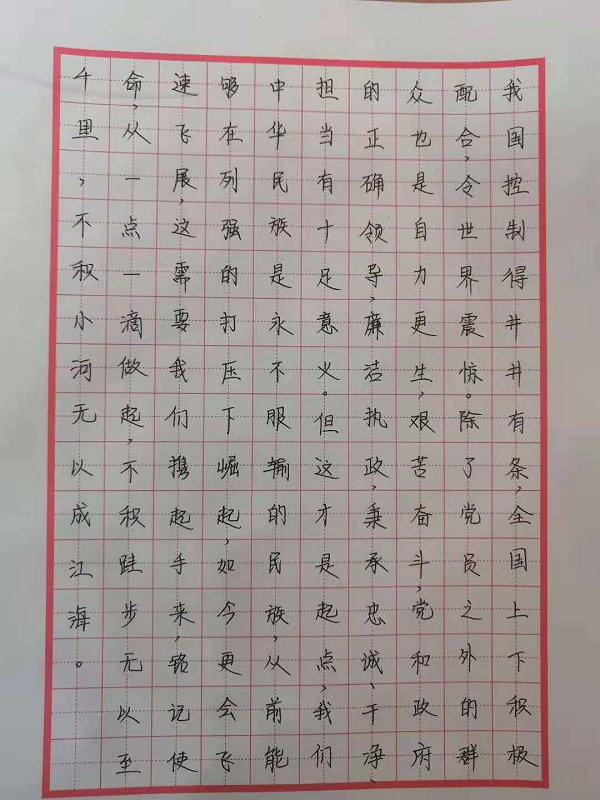 我国控制得井井有条，全国上下积极
配合，令世界震惊。除了党员之外的群
众也是自力更生，艰苦奋斗，党和政府
的正确领导，廉洁执政，秉承忠诚、干净、
担当有十足意火。但这才是起点，我们
中华民族是永不服输的民族，从前能
够在列强的打压下崛起，如今更会飞
速飞展，这需要我们携起手来，铭记使
命，从一点一滴做起，不积跬步无以至
千里，不积小河无以成江海。